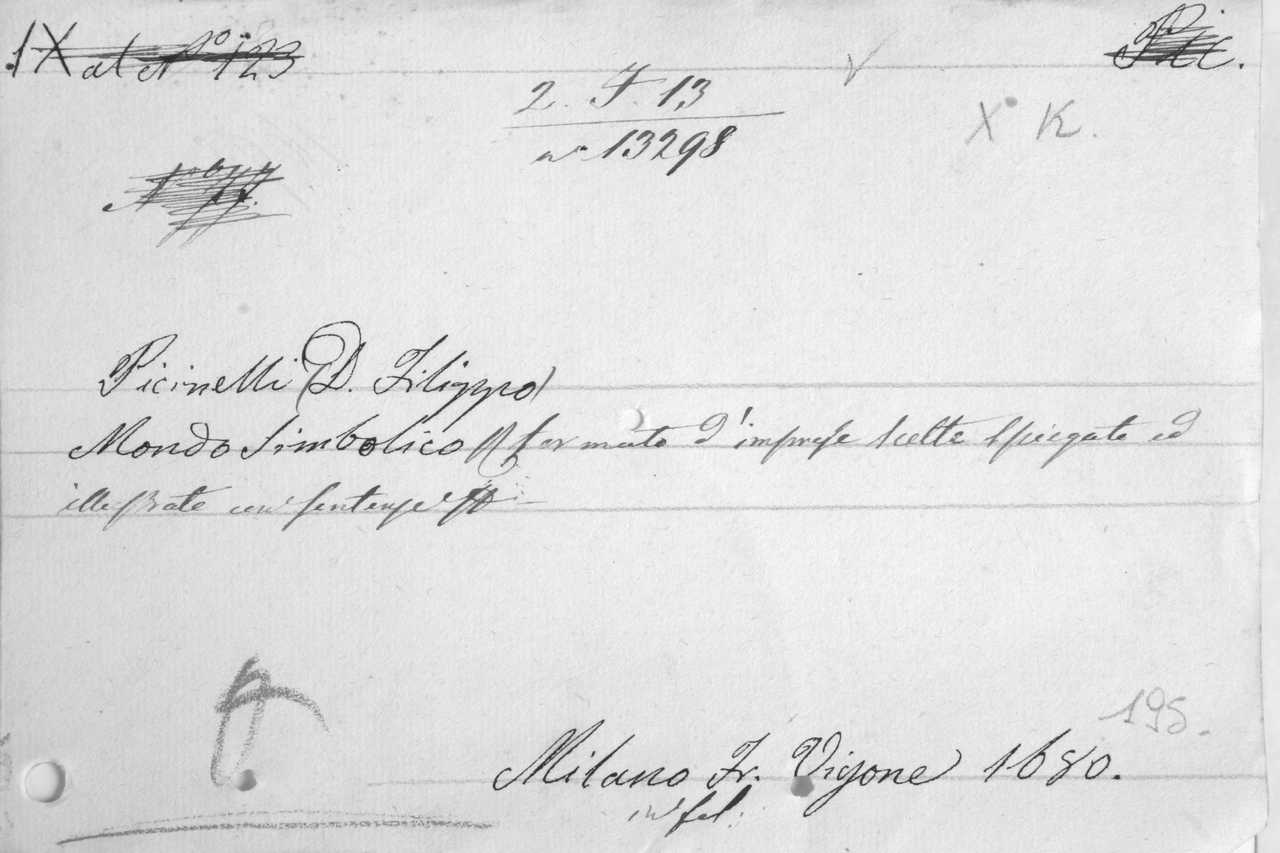 IX al N° 123
Pic.
2. F. 13
n° 13298
X° K.
Picinelli (D. Filippo)
Mondo Simbolico formato d'imprese scelte spiegate ed
illustrate con sentenze
195.
Milano Fr. Vigone 1680.
in fol.